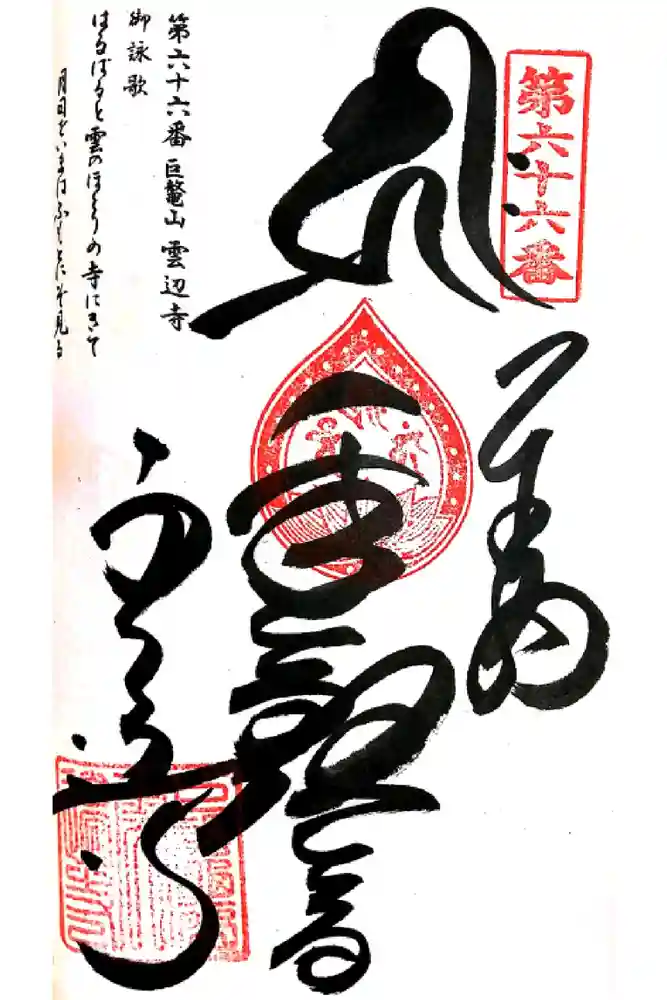 第六十六番
奉納
千手観音
雲辺寺
第六十六番 巨鼇山 雲辺寺
御詠歌
はるばると雲のほとりの寺にきて
月日をいまはふもとにぞ見る